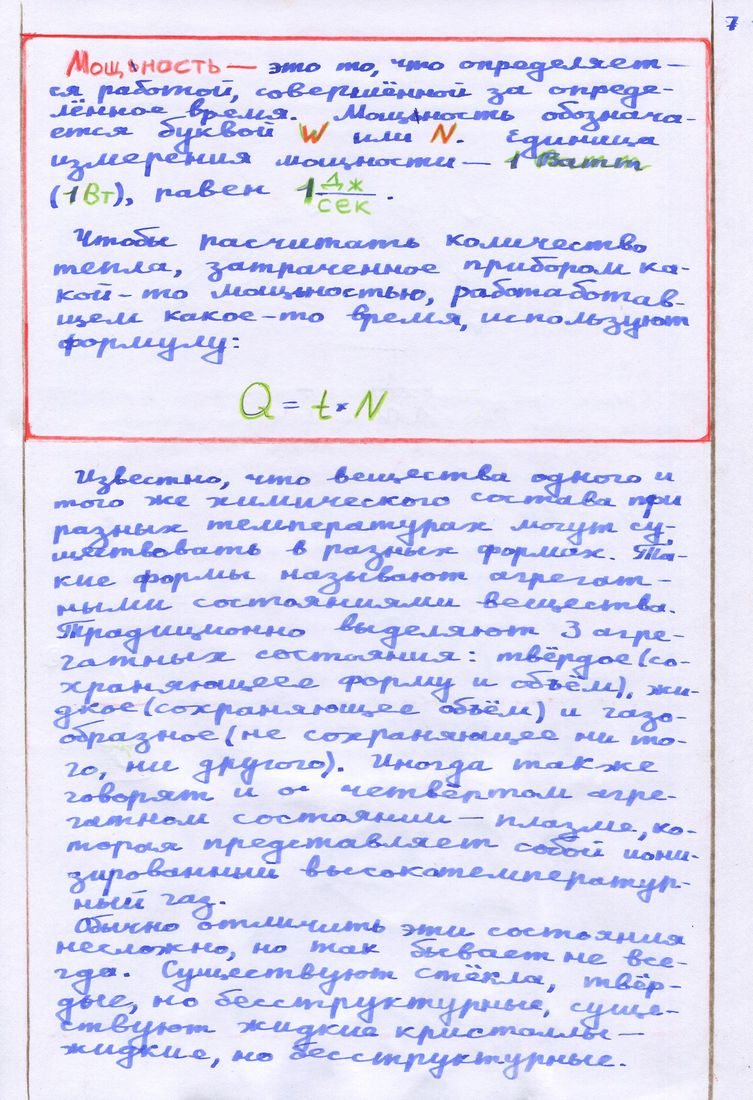 7
Мощность — это то, что определяет-
ся работой, совершённой за опреде-
лённое время. Мощность обознача-
ется буквой W или N. Единица
измерения мощности — 1 Ватт
(1 Вт), равен 1 Дж/сек.
Чтобы расчитать количество
тепла, затраченное прибором ка-
кой-то мощностью, работаботав-
щем какое-то время, используют
формулу:
Q = t * N
Известно, что вещества одного и
того же химического состава при
разных температурах могут су-
ществовать в разных формах. Та-
кие формы называют агрегат-
ными состояниями вещества.
Традиционно выделяют 3 агре-
гатных состояния: твёрдое (со-
храняющеее форму и объём), жи-
дкое (сохраняющее объём) и газо-
образное (не сохраняющее ни то-
го, ни другого). Иногда также
говорят и о четвёртом агре-
гатном состоянии — плазме, ко-
торая представляет собой иони-
зированный высокатемператур-
ный газ.
Обычно отличить эти состояния
несложно, но так бывает не все-
гда. Существуют стёкла, твёр-
дые, но бесструктурные, суще-
ствуют жидкие кристаллы —
жидкие, но бесструктурные.